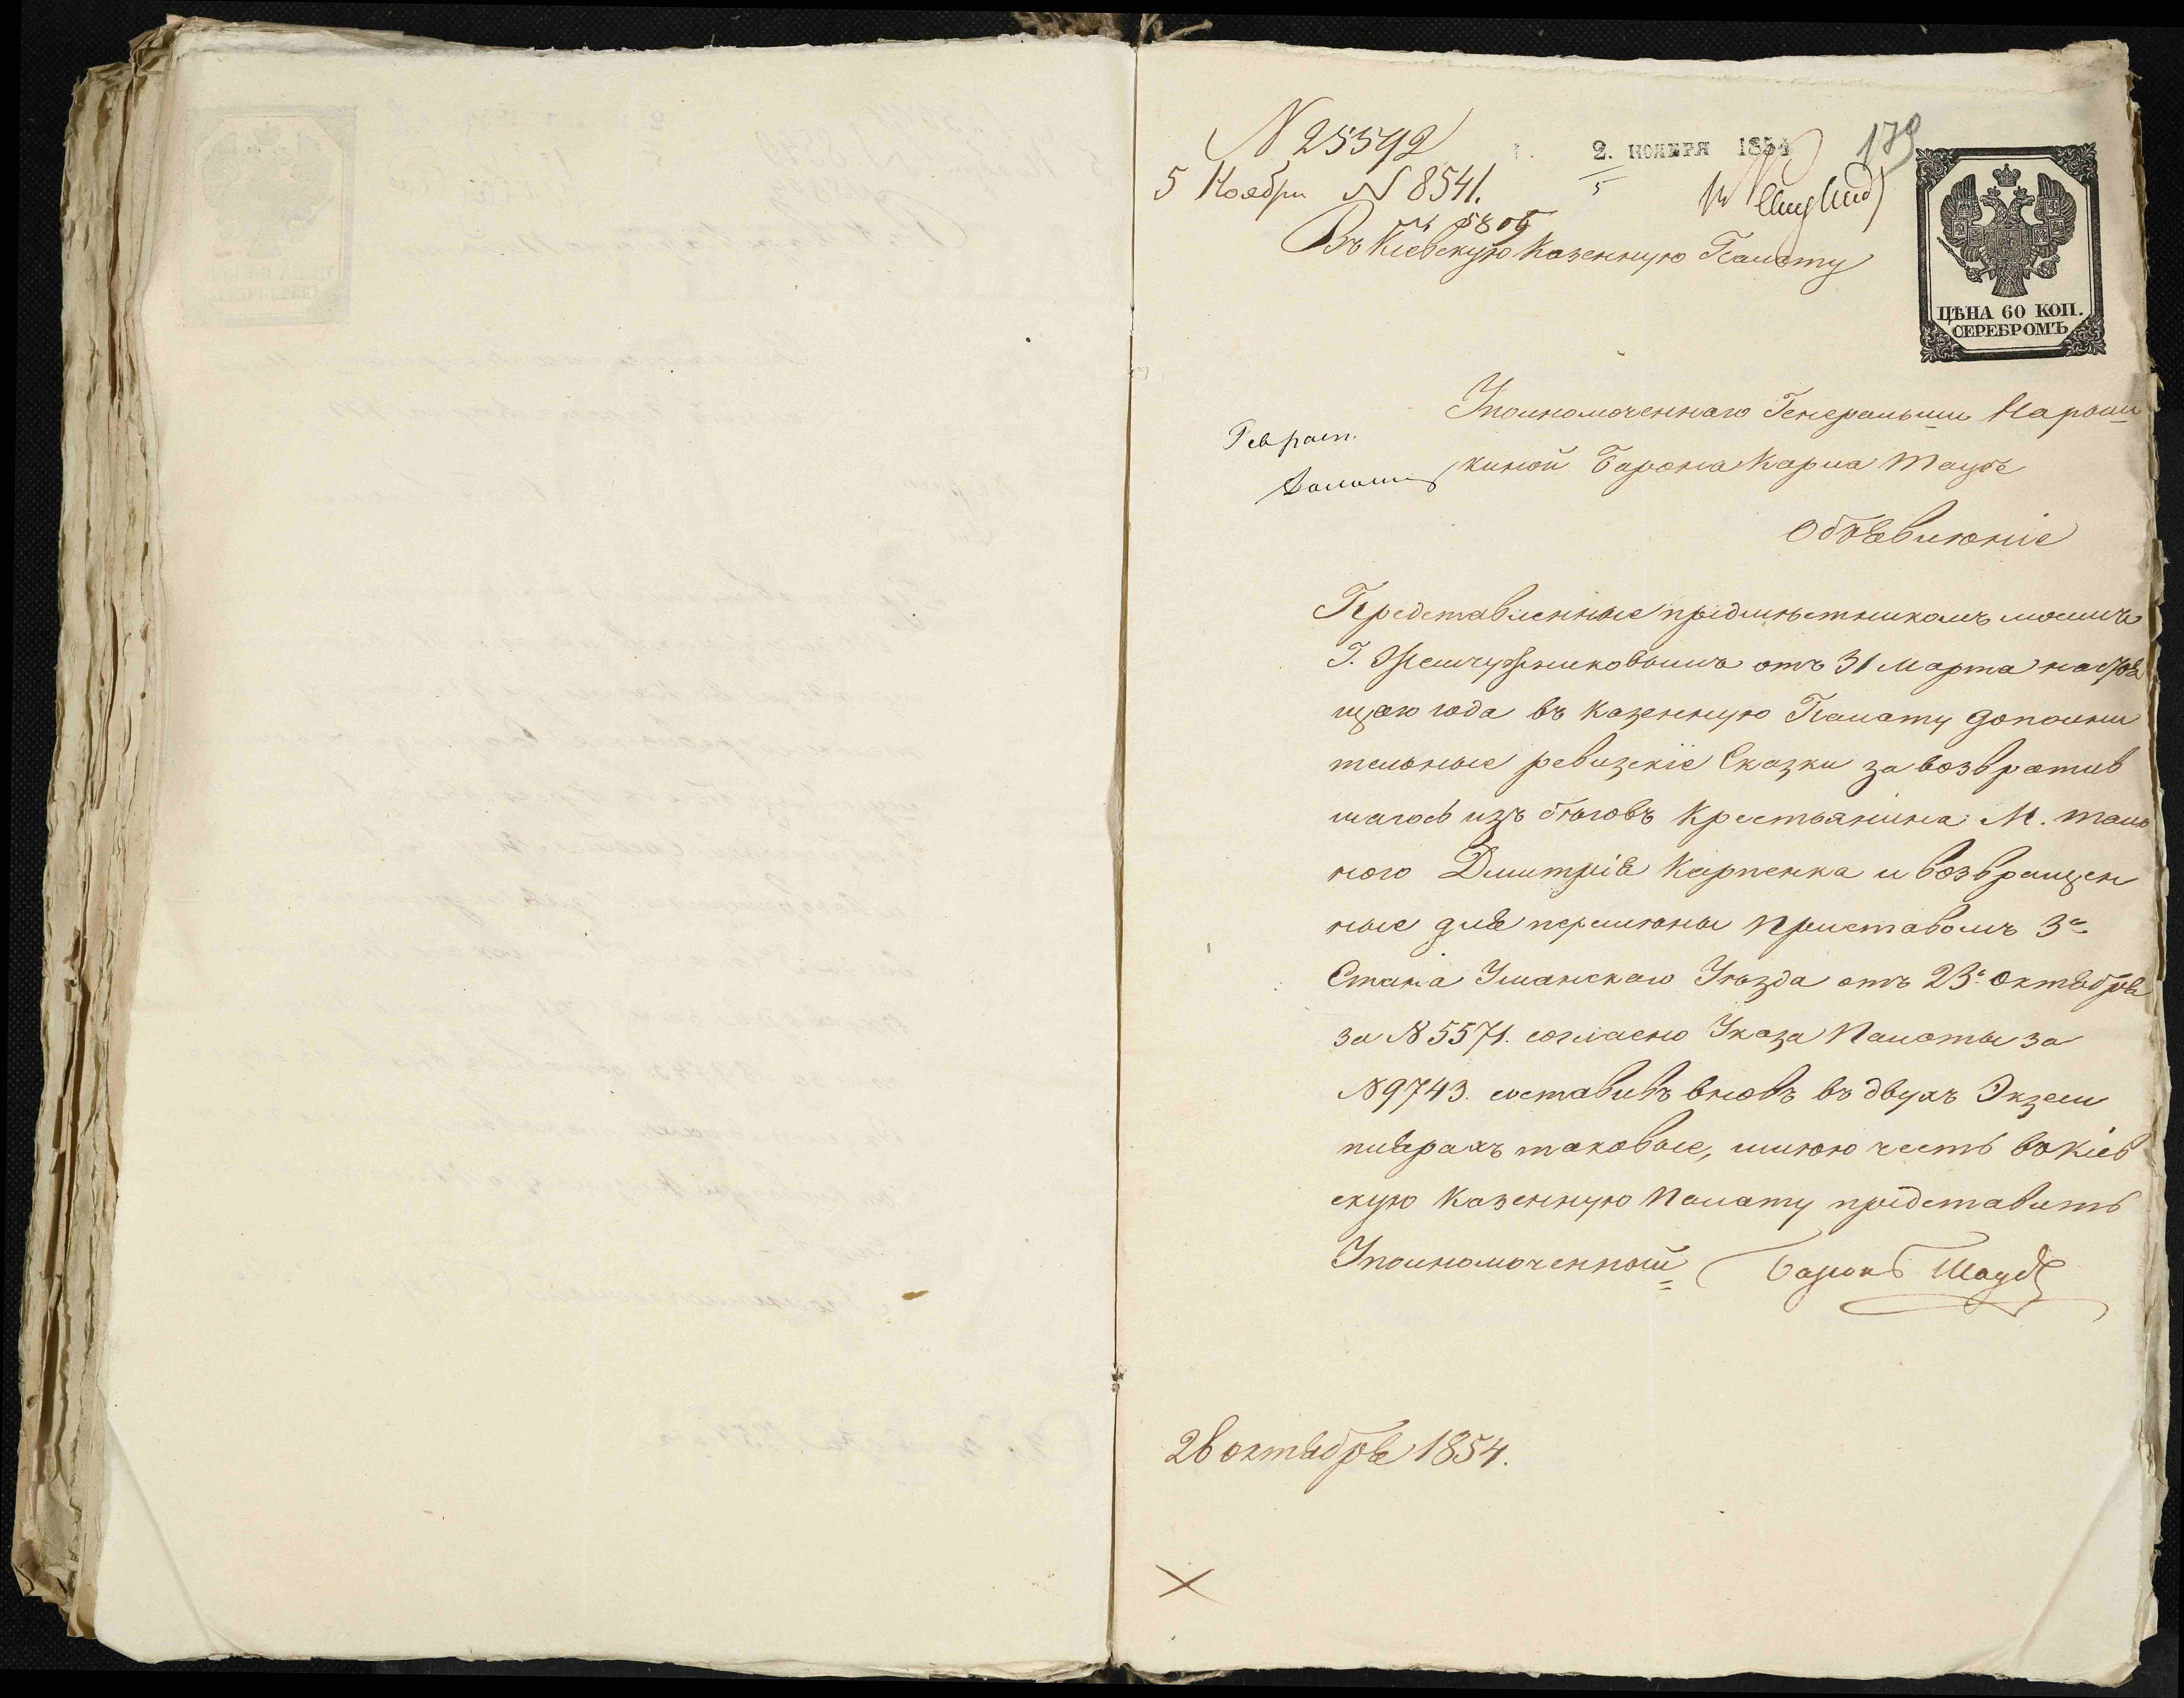 N 25592
2. НОЯБРЯ 1854
179
5 Ноября N 8541.
5
N 5809
Въ Кіевскую Казенную Палату
ЦѢНА 60 КОП.
СЕРЕБРОМЪ
Уполномоченнаго Генеральши Нарыш
киной Барона Карла Таубе
Объявленіе
Представленные предмѣстникомъ моимъ
Г. Жемчужниковымъ отъ 31 Марта настоя
щаго года въ Казенную Палату дополни
тельные ревизскіе Сказки за возвратив
шагось изъ бѣговъ Крестьянина М. Таль
ного Дмитрія Карпенка и возвращен
ные для перемѣны Приставомъ 3го
Стана Уманскаго Уѣзда отъ 23го Октября
за N 5571. согласно Указа Палаты за
N 9743. составивъ вновъ въ двухъ Экзем
плярахъ таковые, имѣю честь въ Кіев
скую Казенную Палату представить
Уполномоченный Баронъ Таубе
26 октября 1854.